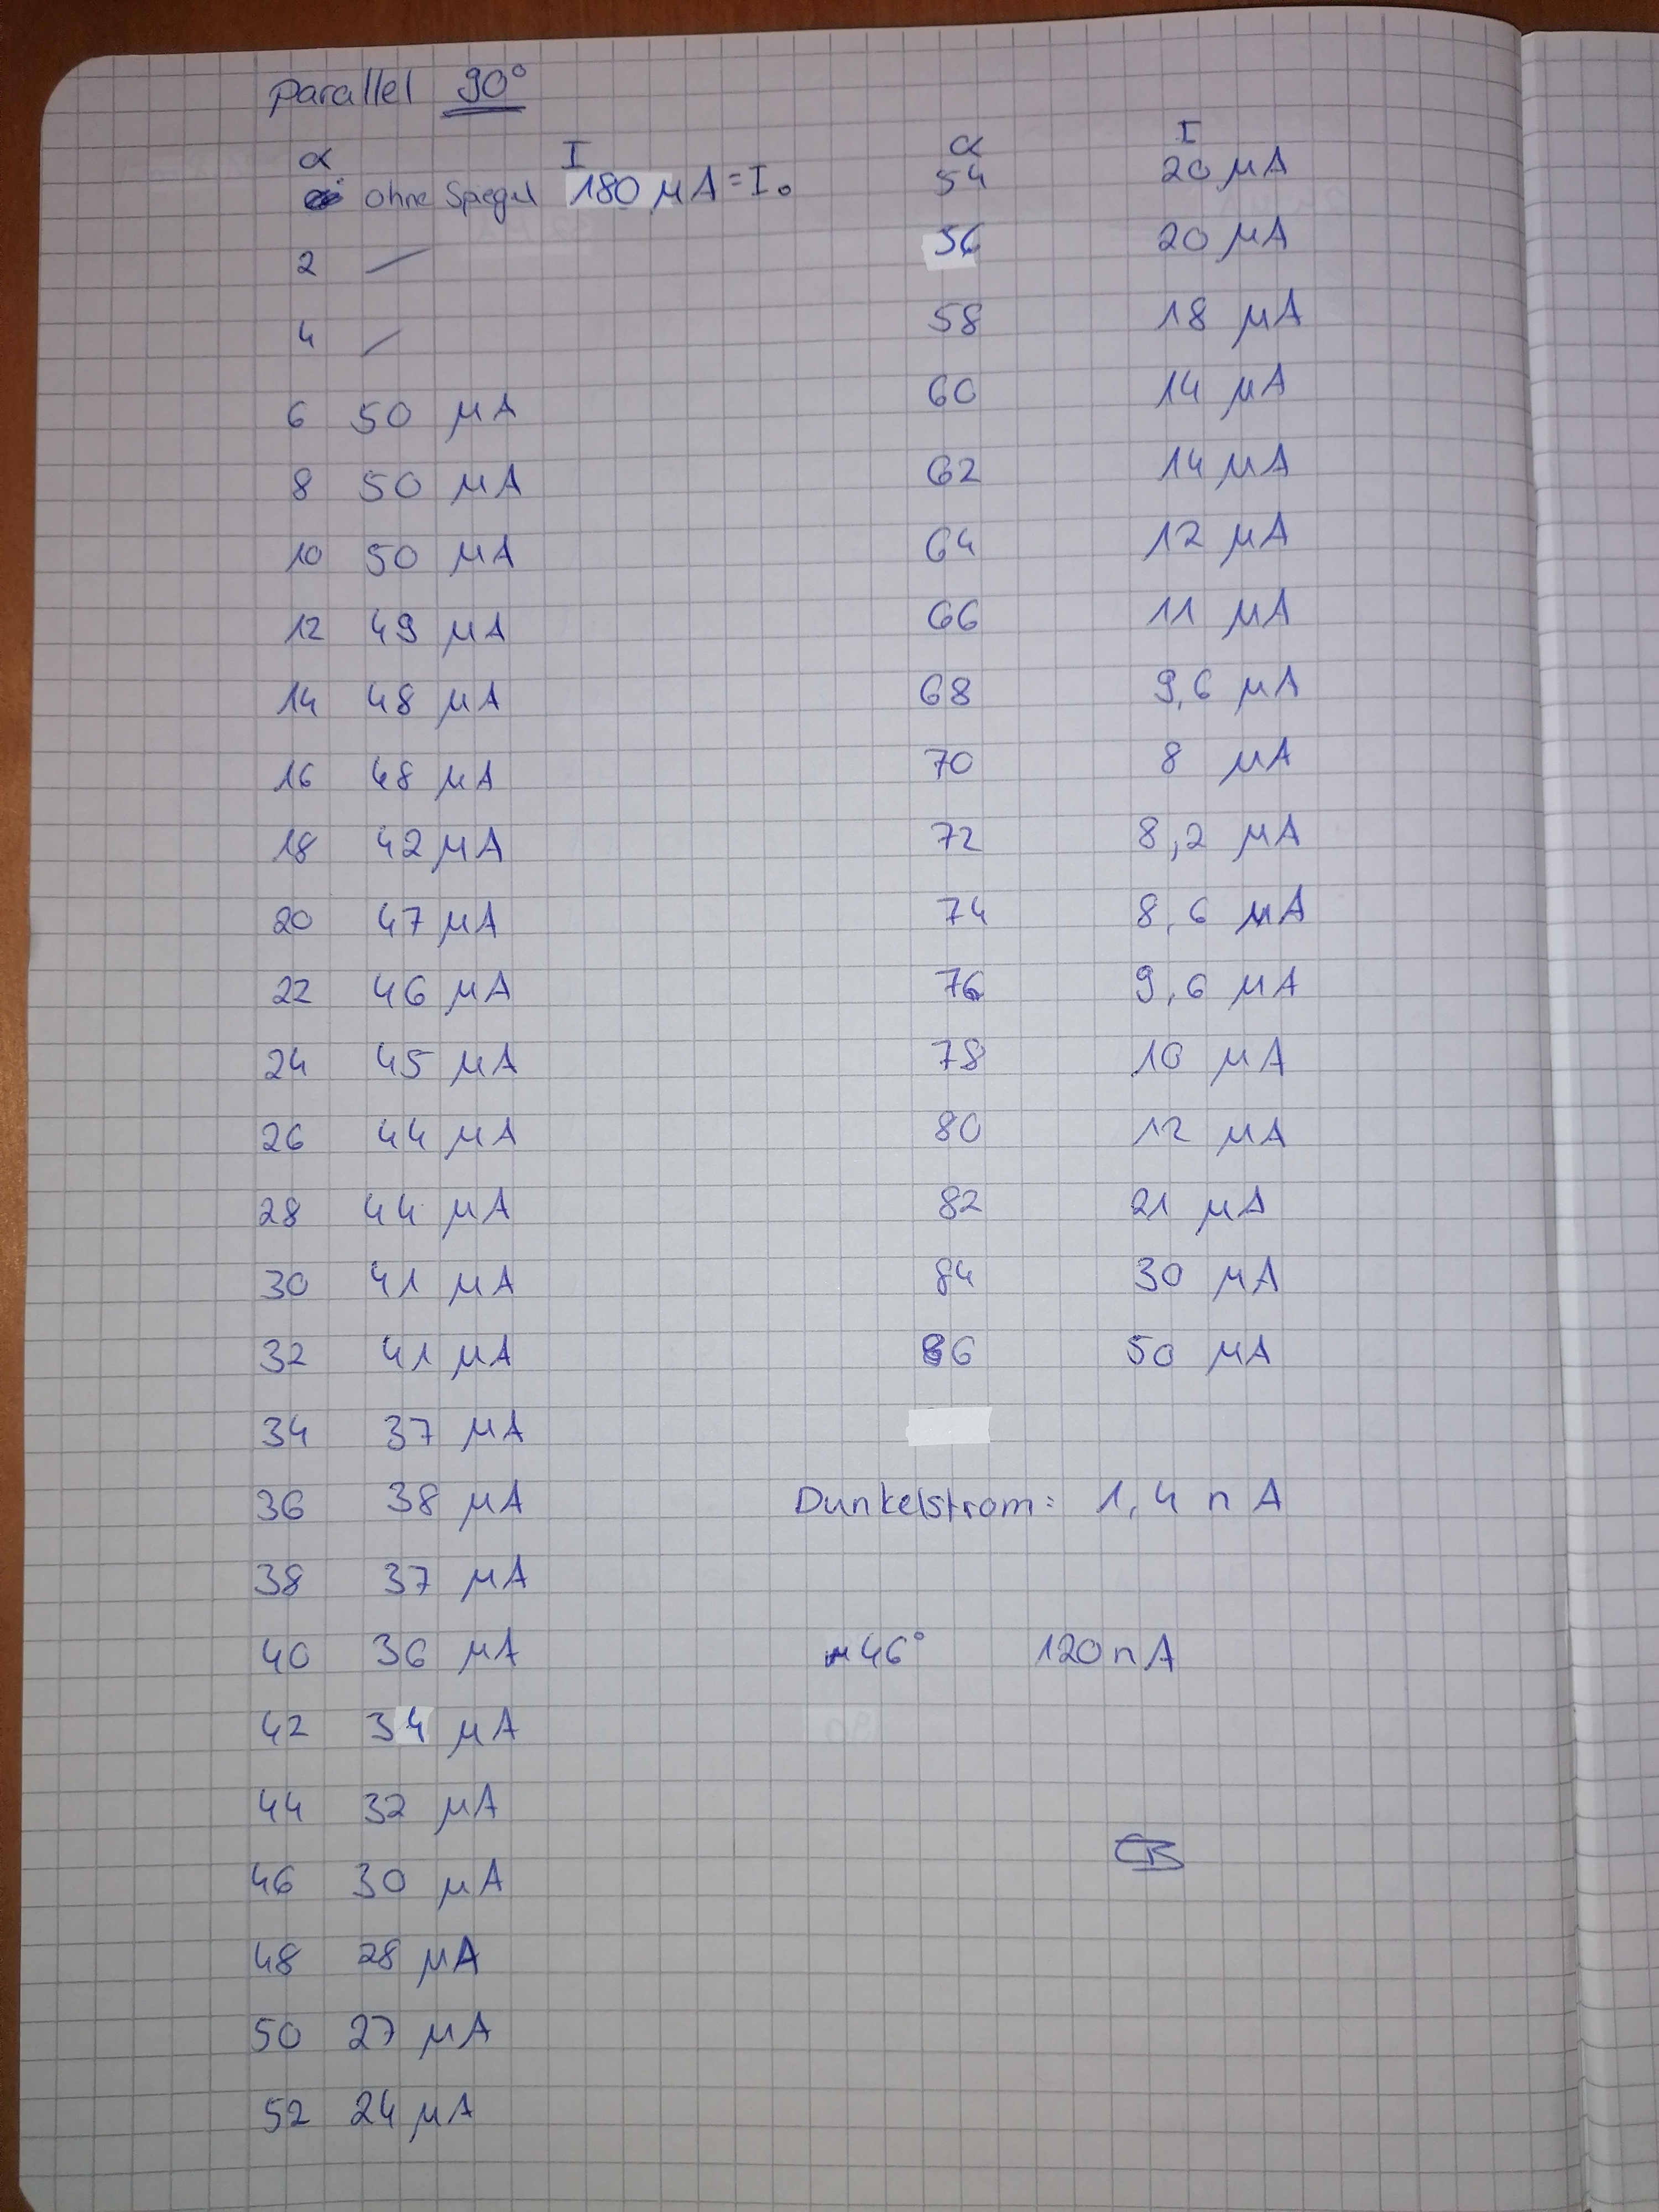 parallel 90°
α I
ohne Spiegel 180 μA = I₀
2 —
4 —
6 50 μA
8 50 μA
10 50 μA
12 49 μA
14 48 μA
16 48 μA
18 42 μA
20 47 μA
22 46 μA
24 45 μA
26 44 μA
28 44 μA
30 41 μA
32 41 μA
34 37 μA
36 38 μA
38 37 μA
40 36 μA
42 34 μA
44 32 μA
46 30 μA
48 28 μA
50 27 μA
52 24 μA
α I
54 20 μA
56 20 μA
58 18 μA
60 14 μA
62 14 μA
64 12 μA
66 11 μA
68 9,6 μA
70 8 μA
72 8,2 μA
74 8,6 μA
76 9,6 μA
78 10 μA
80 12 μA
82 21 μA
84 30 μA
86 50 μA
Dunkelstrom: 1,4 n A
46° 120 n A